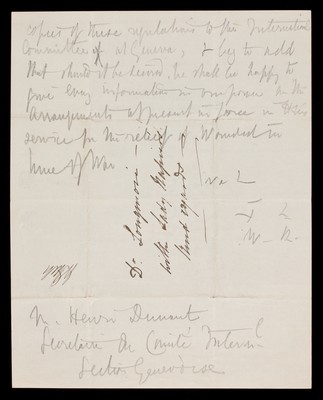 copies of these regulations to the International
Committee at Geneva, & beg to add
that should it be desired, we shall be happy to
give every information in our power on the
arrangements at present in force in this
service for the relief of Wounded in
time of War.
Dr Longmore
with Lady
kind regards
M. Henri Dunant
Secrétaire du Comité Internl
Section Genevoise